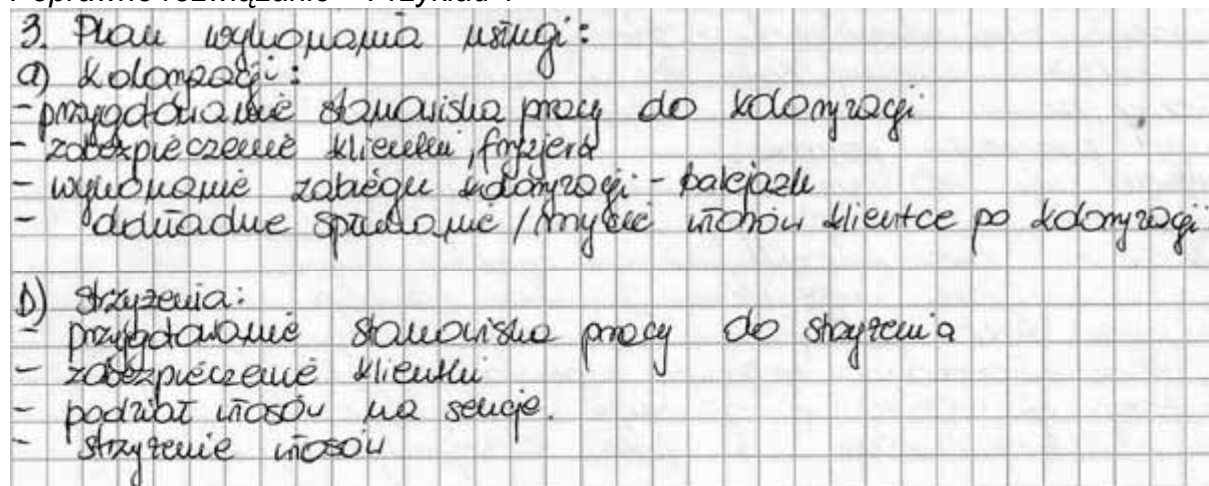 3. Plan wykonania usługi:
a) koloryzacji:
- przygotowanie stanowiska pracy do koloryzacji
- zabezpieczenie klientki, fryzjera
- wykonanie zabiegu koloryzacji - balejażu
- dokładne spłukanie / mycie włosów klientce po koloryzacji
b) strzyżenia:
- przygotowanie stanowiska pracy do strzyżenia
- zabezpieczenie klientki
- podział włosów na sekcje.
- strzyżenie włosów